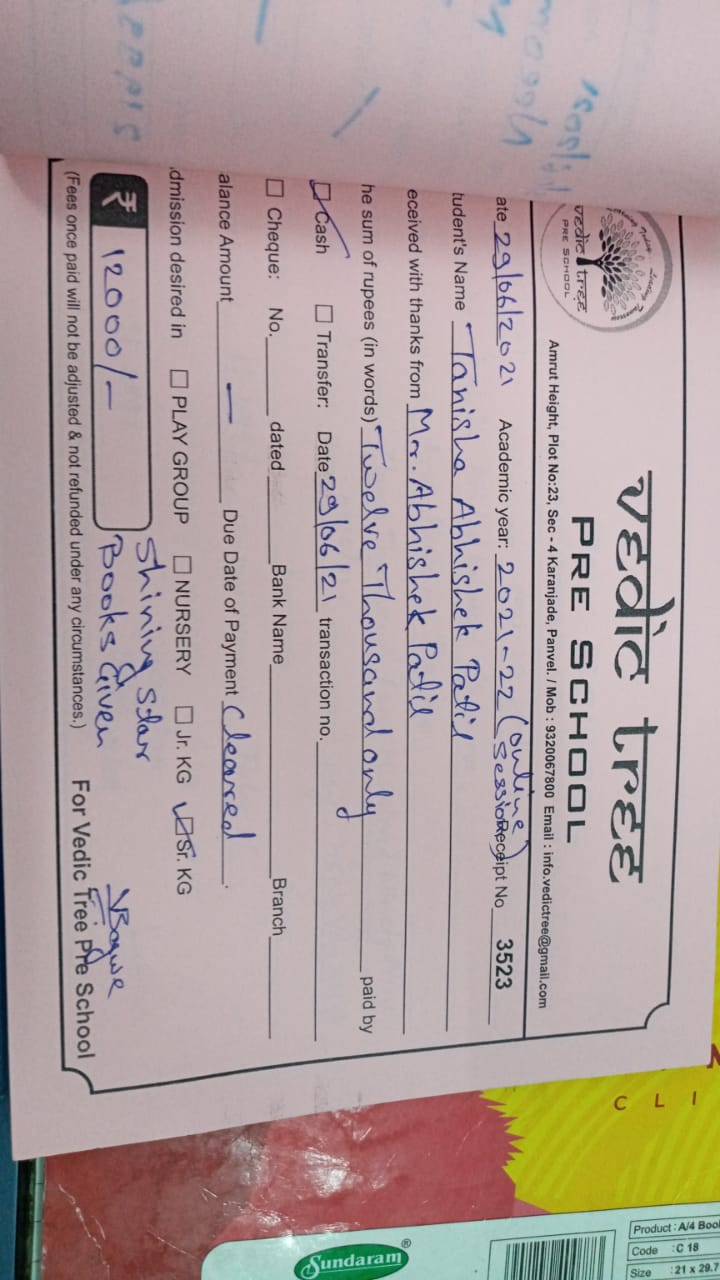 vedic tree
PRE SCHOOL
vedic tree
PRE SCHOOL
Amrut Height, Plot No:23, Sec - 4 Karanjade, Panvel. / Mob : 9320067800 Email : info.vedictree@gmail.com
ate 29/06/2021 Academic year: 2021-22 (online session) Receipt No 3523
tudent's Name Tanisha Abhishek Patil
eceived with thanks from Mr. Abhishek Patil
he sum of rupees (in words) Twelve Thousand only paid by
Cash Transfer: Date 29/06/21 transaction no.
Cheque: No. dated Bank Name Branch
alance Amount — Due Date of Payment Cleared.
dmission desired in PLAY GROUP NURSERY Jr. KG Sr. KG
₹ 12000/- Shining star
Books Given
(Fees once paid will not be adjusted & not refunded under any circumstances.) For Vedic Tree Pre School
C L I
Sundaram®
Product : A/4 Boo
Code : C 18
Size : 21 x 29.7